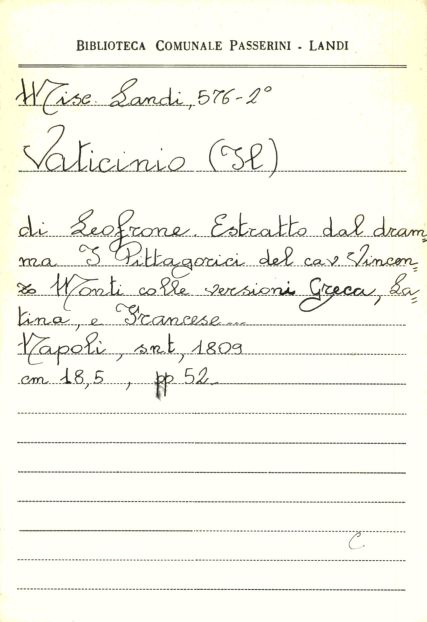 BIBLIOTECA COMUNALE PASSERINI - LANDI
Misc. Landi, 576-2°
Vaticinio (Il)
di Leofrone. Estratto dal dram=
ma I Pittagorici del cav. Vincen=
zo Monti colle versioni Greca, La=
tina, e Francese...
Napoli, snt, 1809
cm 18,5, pp 52
C.